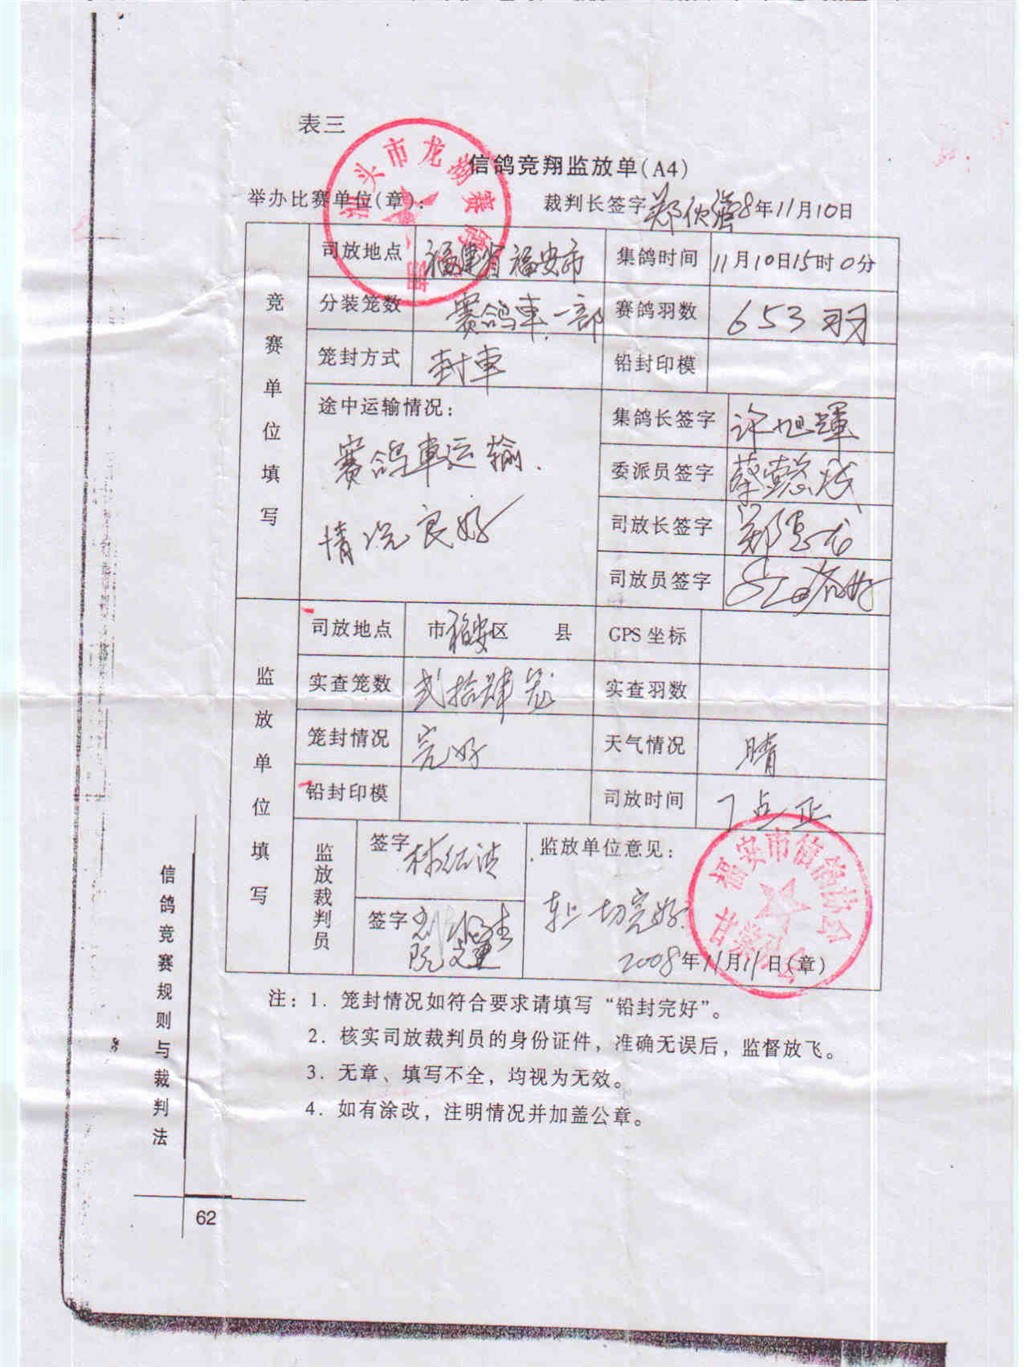 表三
信鸽竞翔监放单(A4)
举办比赛单位(章): 裁判长签字 郑 8年11月10日
汕头市龙湖赛鸽
竞赛单位填写
司放地点 福建省福安市 集鸽时间 11月10日15时0分
分装笼数 赛鸽車一部 赛鸽羽数 653羽
笼封方式 封車 铅封印模
途中运输情况: 集鸽长签字 许旭輝
赛鸽車运输. 委派员签字 蔡
情况良好 司放长签字 郑
司放员签字
监放单位填写
司放地点 市福安区 县 GPS坐标
实查笼数 弍拾肆笼 实查羽数
笼封情况 完好 天气情况 晴
铅封印模 司放时间 7点正
监放裁判员
签字 林红
签字
监放单位意见:
一切完好
2008年11月11日(章)
福安市信鸽协会
注: 1. 笼封情况如符合要求请填写“铅封完好”。
2. 核实司放裁判员的身份证件，准确无误后，监督放飞。
3. 无章、填写不全，均视为无效。
4. 如有涂改，注明情况并加盖公章。
信鸽竞赛规则与裁判法
62